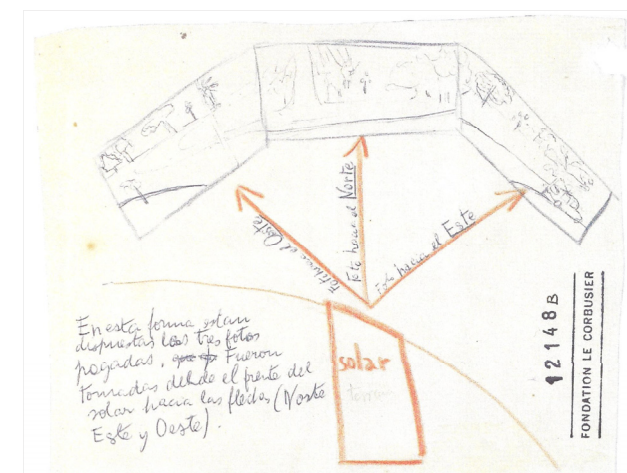 Foto hacia el Oeste
Foto hacia el Norte
Foto hacia el Este
En esta forma estan
dispuestas las tres fotos
pegadas. Fueron
tomadas desde el frente del
solar hacia las flechas (Norte
Este y Oeste).
solar
12148B
FONDATION LE CORBUSIER